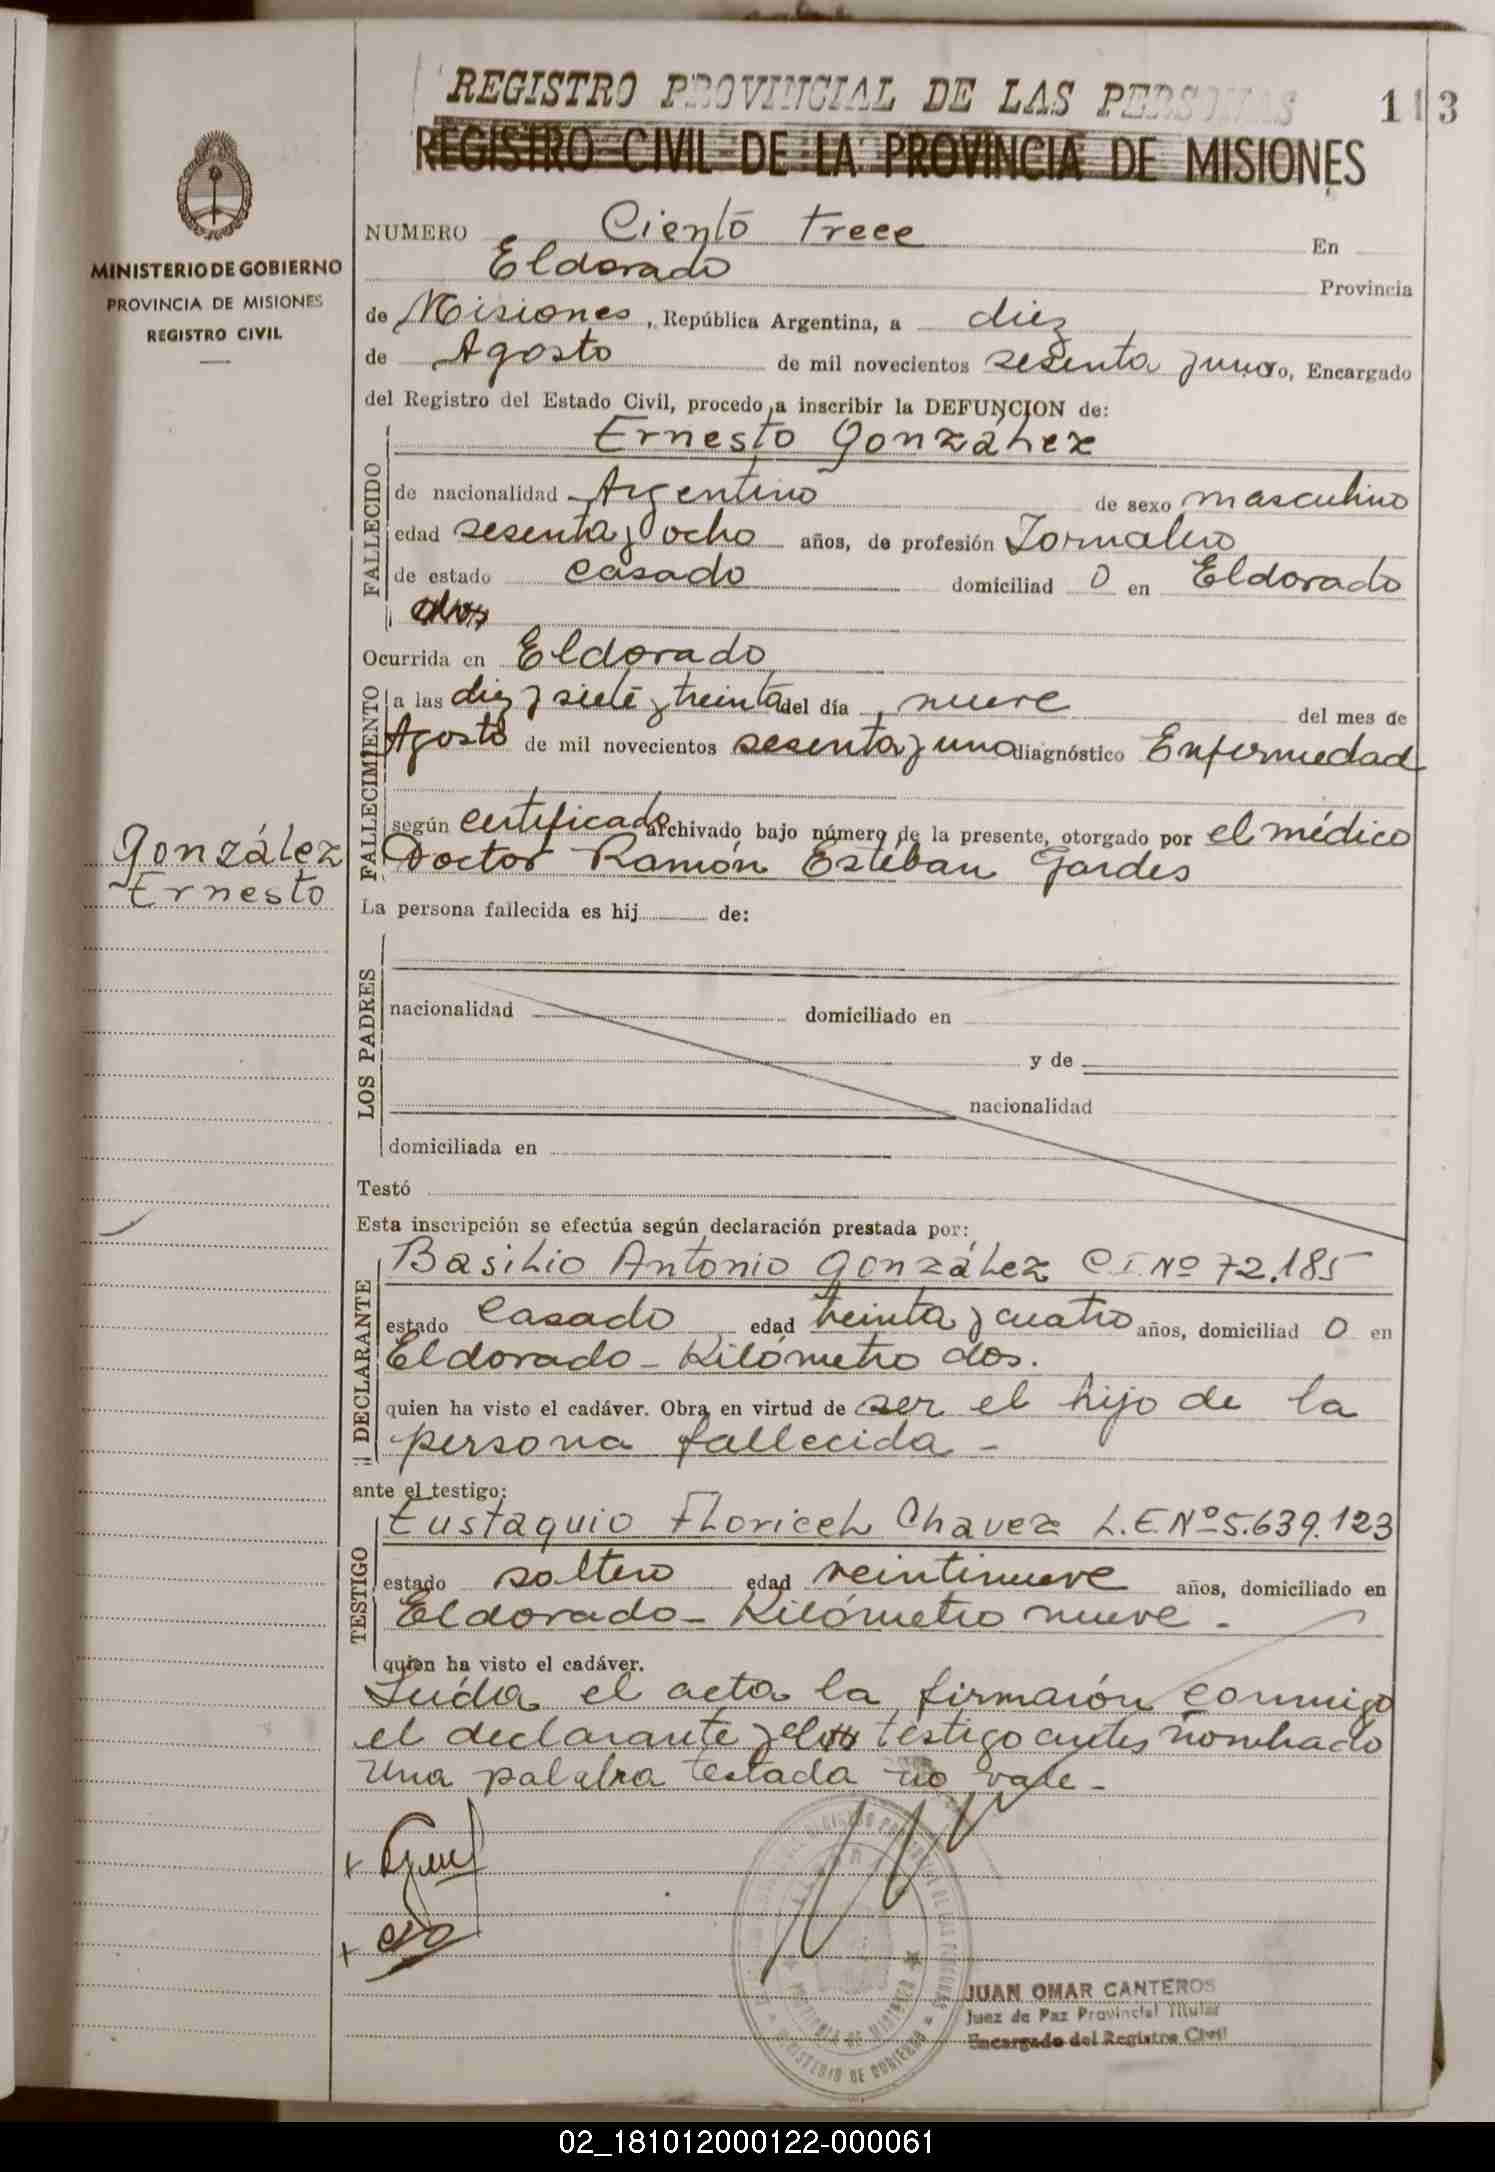 REGISTRO PROVINCIAL DE LAS PERSONAS 113
REGISTRO CIVIL DE LA PROVINCIA DE MISIONES
MINISTERIO DE GOBIERNO
PROVINCIA DE MISIONES
REGISTRO CIVIL
NUMERO Ciento trece En
Eldorado Provincia
de Misiones, República Argentina, a diez
de Agosto de mil novecientos sesenta y uno, Encargado
del Registro del Estado Civil, procedo a inscribir la DEFUNCION de:
FALLECIDO
Ernesto González
de nacionalidad Argentino de sexo masculino
edad sesenta y ocho años, de profesión Jornalero
de estado casado domiciliad o en Eldorado
Ocurrida en Eldorado
FALLECIMIENTO
a las diez y siete y treinta del día nueve del mes de
Agosto de mil novecientos sesenta y uno diagnóstico Enfermedad
según certificado archivado bajo número de la presente, otorgado por el médico
Doctor Ramón Esteban Gardes
González
Ernesto
La persona fallecida es hij de:
LOS PADRES
nacionalidad domiciliado en
y de
nacionalidad
domiciliada en
Testó
Esta inscripción se efectúa según declaración prestada por:
DECLARANTE
Basilio Antonio González C.I. Nº 72.185
estado casado edad treinta y cuatro años, domiciliad o en
Eldorado - Kilómetro dos.
quien ha visto el cadáver. Obra en virtud de ser el hijo de la
persona fallecida -
ante el testigo:
TESTIGO
Eustaquio Floricel Chavez L.E. Nº 5.639.123
estado soltero edad veintinueve años, domiciliado en
Eldorado - Kilómetro nueve -
quien ha visto el cadáver.
Leída el acta la firmarón conmigo
el declarante y el testigo antes nombrado
Una palabra testada no vale -
JUAN OMAR CANTEROS
Juez de Paz Provincial Titular
Encargado del Registro Civil
PROVINCIA DE MISIONES
MINISTERIO DE GOBIERNO
02_181012000122-000061